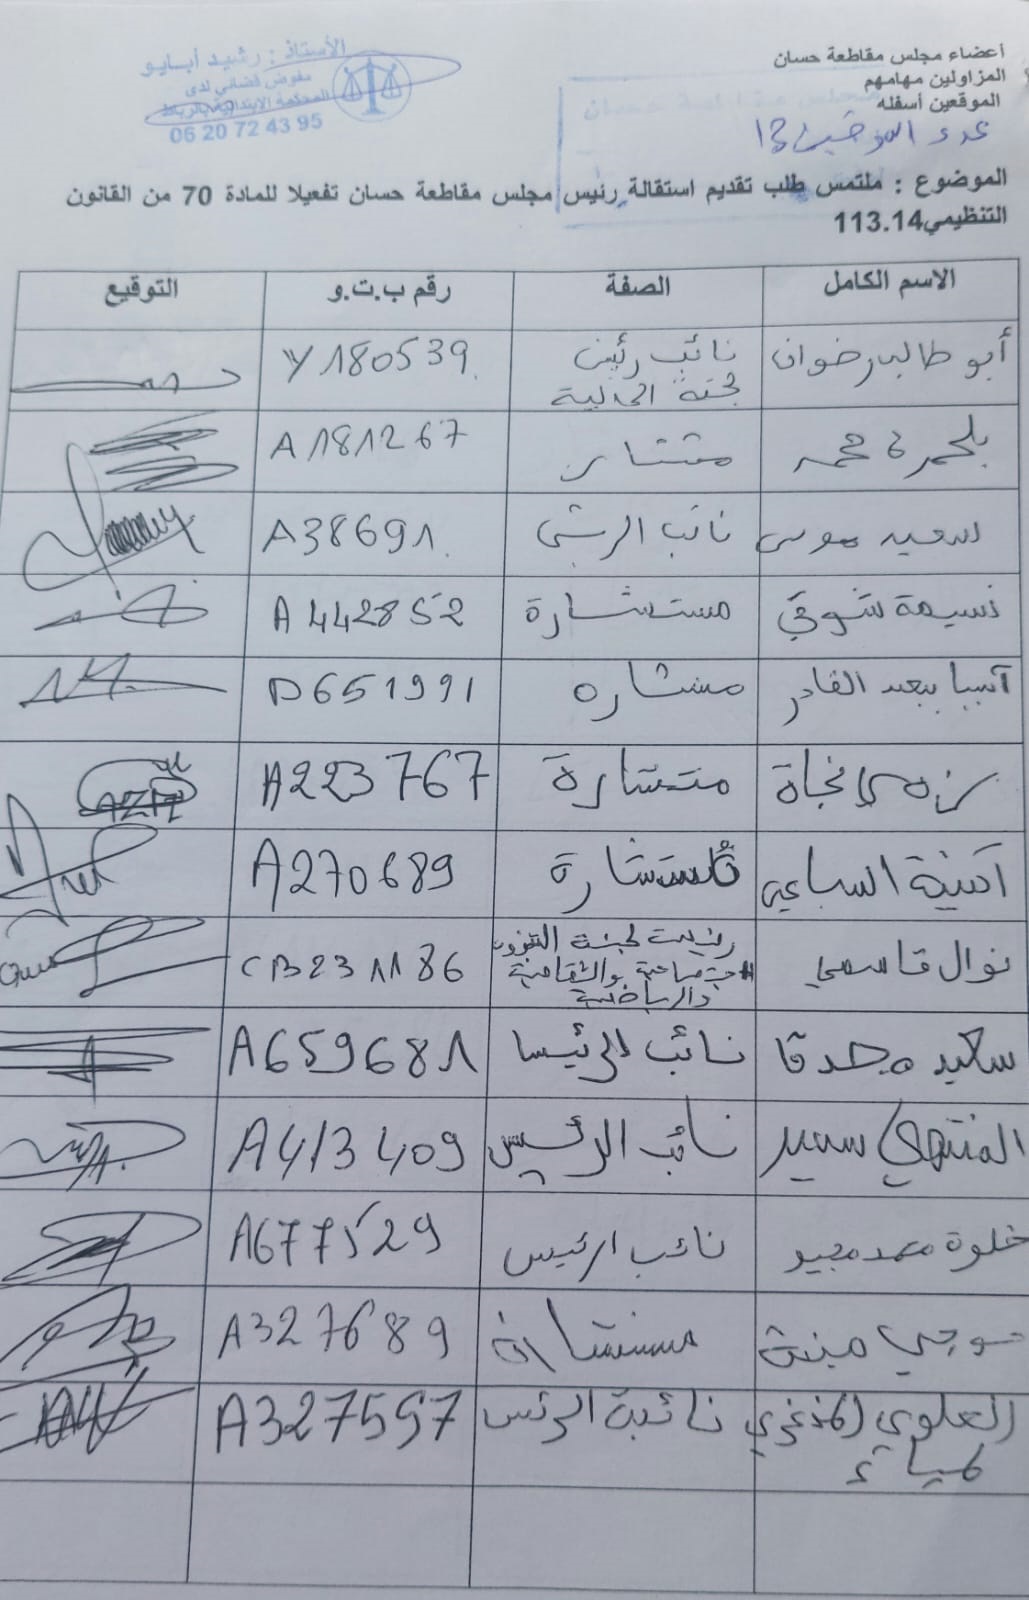 الأستاذ : رشيد أبايو
مفوض قضائي لدى
المحكمة الابتدائية بالرباط
06 20 72 43 95
أعضاء مجلس مقاطعة حسان
المزاولين مهامهم
الموقعين أسفله
عدد الموقعين 13
مجلس مقاطعة حسان
الموضوع : ملتمس طلب تقديم استقالة رئيس مجلس مقاطعة حسان تفعيلا للمادة 70 من القانون
التنظيمي113.14
الاسم الكامل الصفة رقم ب.ت.و التوقيع
أبو طالب رضوان نائب رئيس Y180539
لجنة المالية
محمد A181267
سعيد موسى نائب الرئيس A38691
نسيمة شوقي مستشارة A442852
عبد القادر مستشارة D651991
نجاة مستشارة A223767
السباعي مستشارة A270689
نوال قاسمي رئيسة لجنة الشؤون CB231186
والثقافية
والرياضية
سعيد نائب الرئيس A659681
المنتهي سمير نائب الرئيس A413409
خلوة محمد نائب الرئيس A677529
مستشارة A327689
العلوي المدغري نائبة الرئيس A327597
لمياء